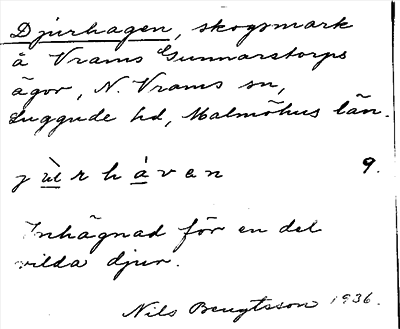 Djurhagen, skogsmark
å Vrams Gunnarstorps
ägor, N. Vrams sn,
Luggude hd, Malmöhus län.
9.
Inhägnad för en del
vilda djur.
Nils Bengtsson 1936.